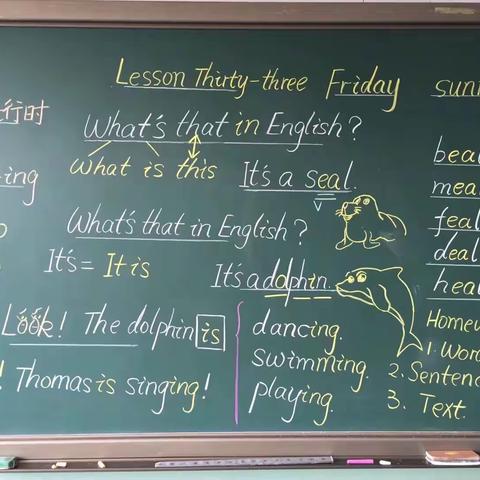 Lesson Thirty-three Friday sunn
行时
What's that in English?
What is this
It's a seal.
-ing
What's that in English?
It's = It is
It's a dolphin.
Look! The dolphin is
! Thomas is singing!
dancing.
swimming.
playing.
feal
deal
2. Sentenc
3. Text.